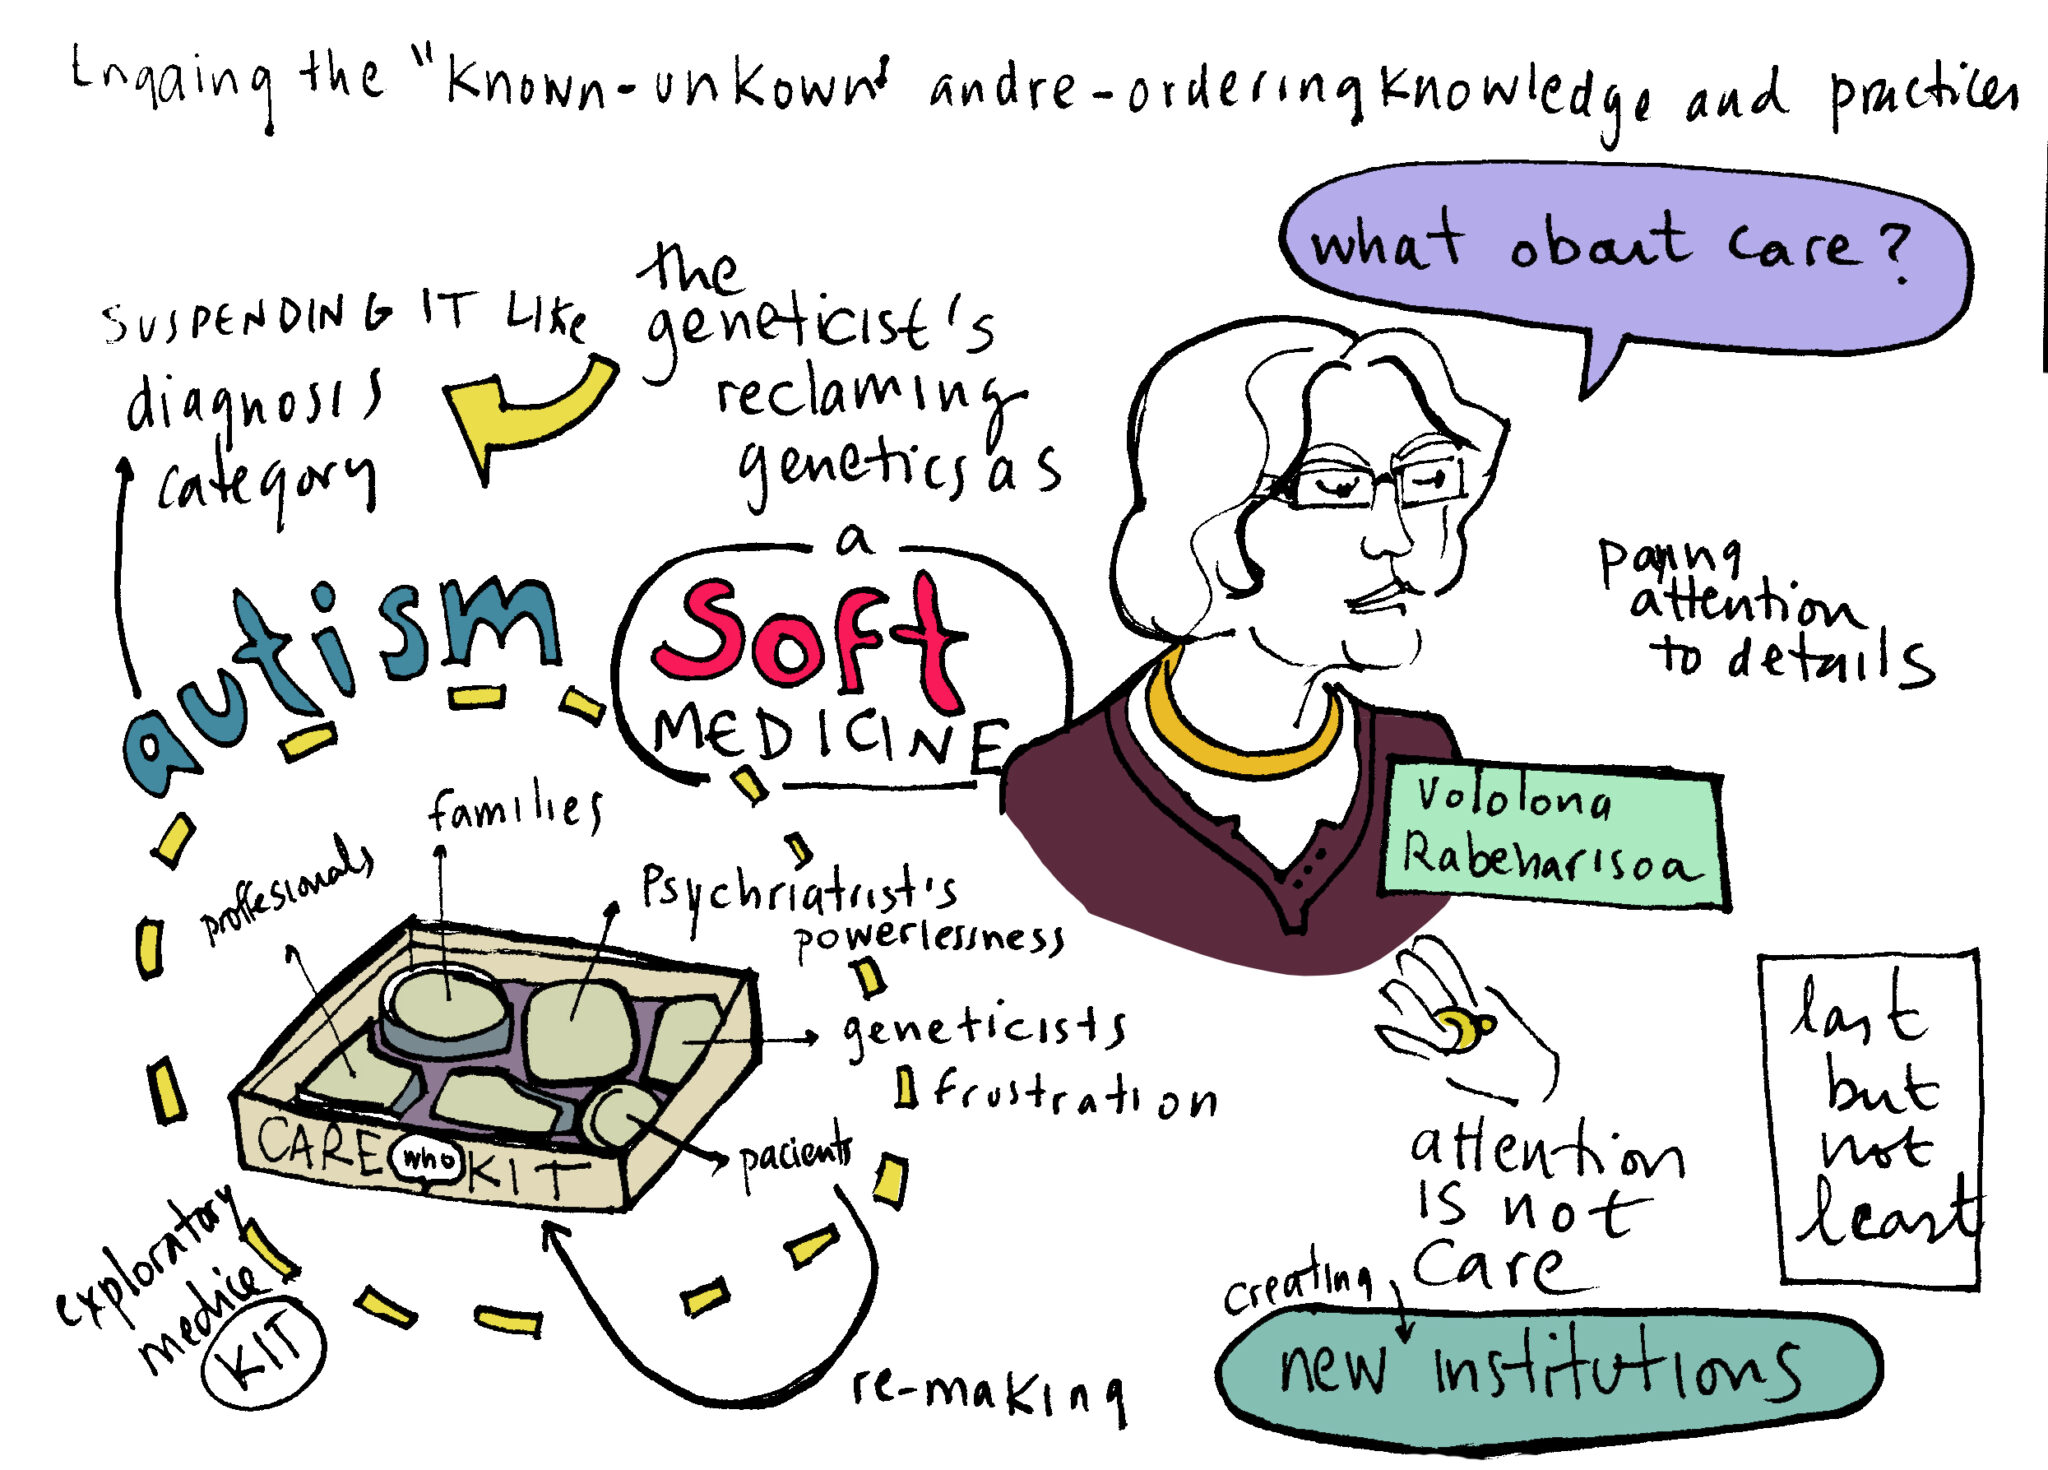 Engaing the "Known-unkown" and re-ordering knowledge and practices
what about care?
the
geneticist's
reclaming
genetics as
a
Soft
MEDICINE
SUSPENDING IT LIKE
diagnosis
category
autism
paying
attention
to details
Vololona
Rabeharisoa
families
proffesionals
Psychriatrist's
powerlessness
geneticists
frustration
pacients
CARE who KIT
exploratory
medice
KIT
re-making
attention
is not
care
creating
new institutions
last
but
not
least